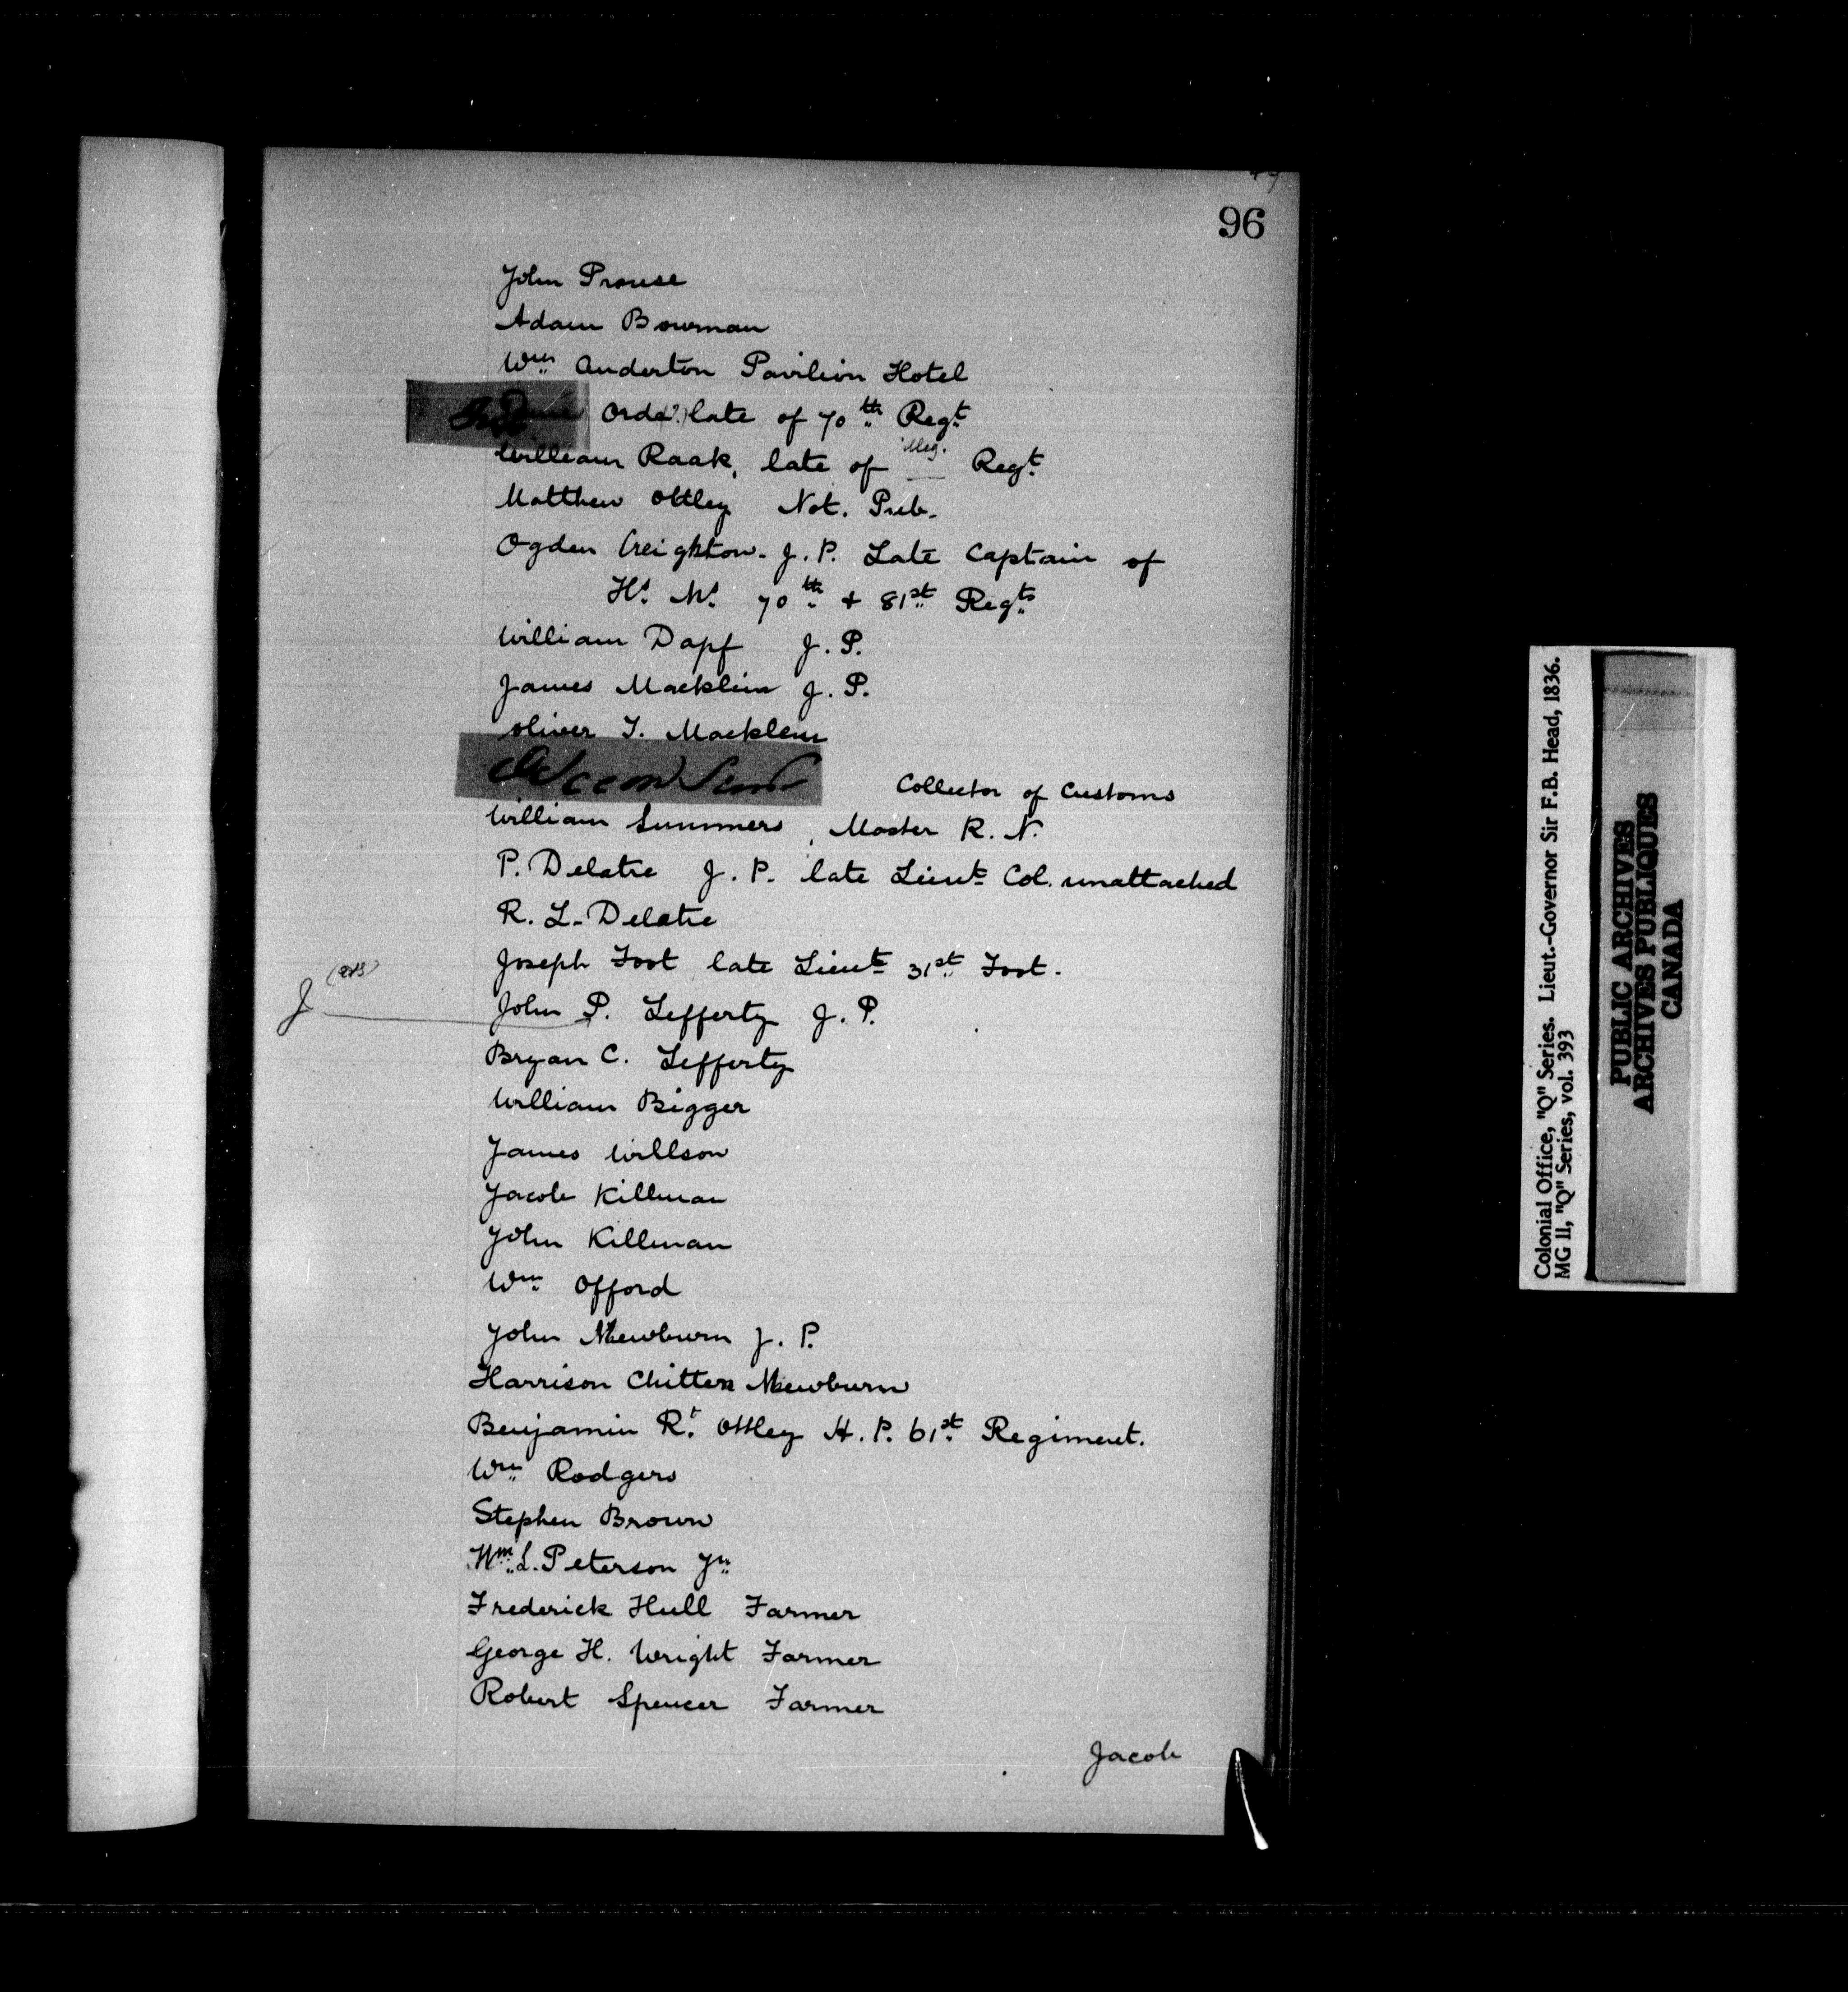 96
John Prouse
Adam Bowman
Wm Anderton Pavilion Hotel
Orde(?) late of 70th Regt
William Raak, late of illeg. Regt
Matthew Ottley Not. Pub.
Ogden Creighton. J. P. Late Captain of
Hs. Ms. 70th + 81st Regts
William Dapf J. P.
James Macklim J. P.
Oliver T. Macklem
Collector of Customs
William Summers, Master R. N.
P. Delatre J. P. late Lieut Col. unattached
R. L. Delatre
Joseph Foot late Lieut 31st Foot.
J
John P. Lefferty J. P.
Bryan C. Lefferty
William Bigger
James Willson
Jacob Killman
John Killman
Wm Offord
John Mewburn J. P.
Harrison Chitten Mewburn
Benjamin Rt. Ottley H. P. 61st Regiment.
Wm Rodgers
Stephen Brown
Wm L. Peterson Jn
Frederick Hull Farmer
George H. Wright Farmer
Robert Spencer Farmer
Jacob
Colonial Office, "Q" Series. Lieut.-Governor Sir F.B. Head, 1836.
MG 11, "Q" Series, vol. 393
PUBLIC ARCHIVES
ARCHIVES PUBLIQUES
CANADA